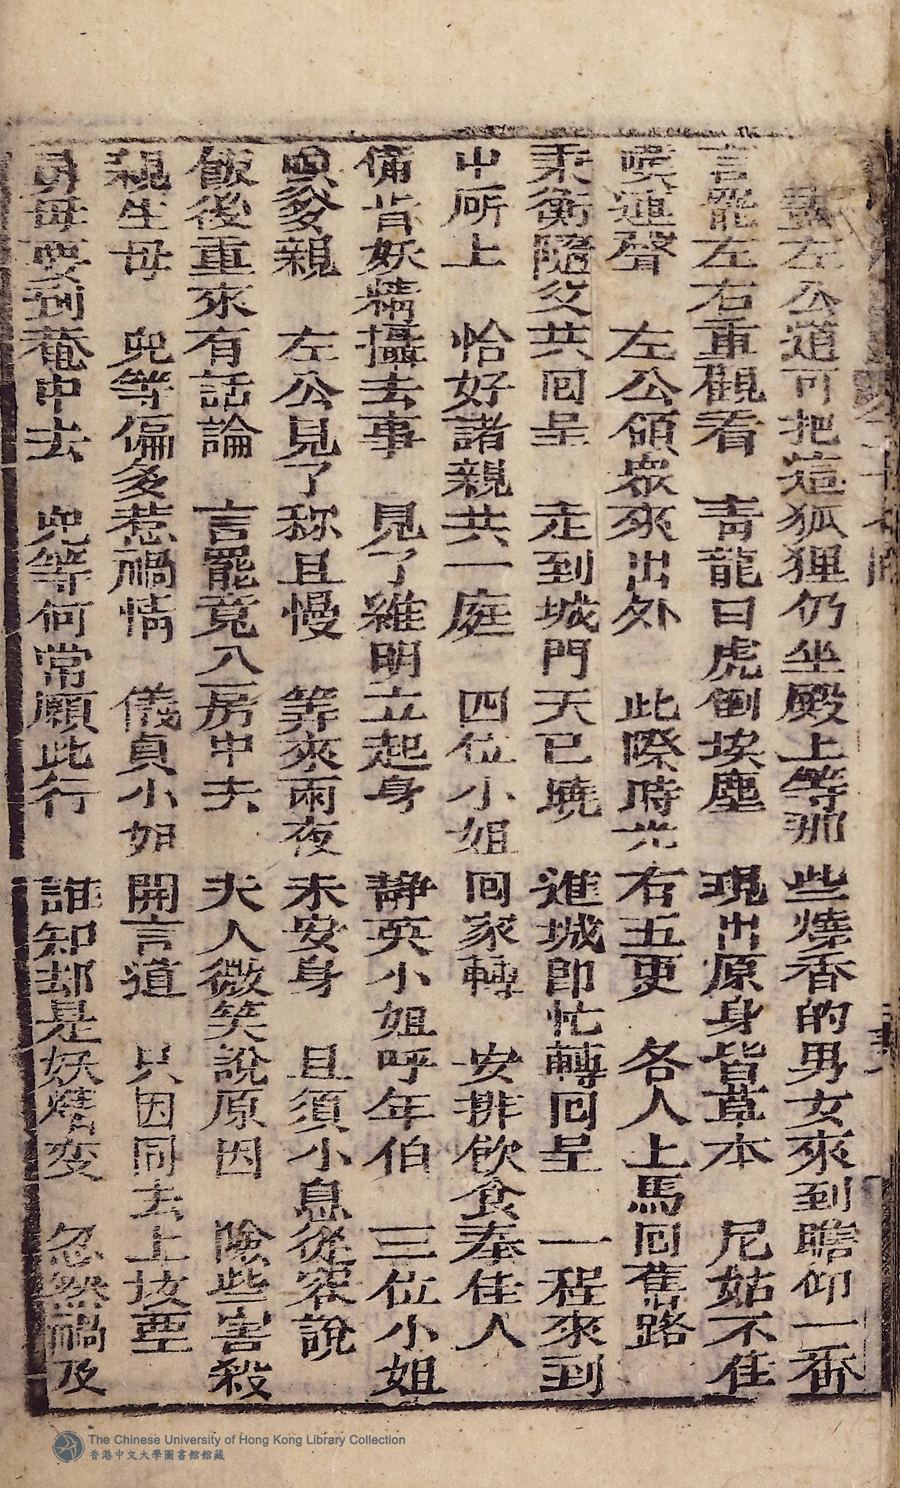 左公道可把這狐狸仍坐殿上等那些燒香的男女來到瞻仰一番
言罷左右重觀看 青龍白虎倒埃塵 現出原身皆草本 尼姑不住
嘆連聲 左公領眾來出外 此際時光右五更 各人上馬回舊路
秉衡隨父共回呈 走到城門天已曉 進城即忙轉回呈 一程來到
中所上 恰好諸親共一庭 四位小姐回家轉 安排飲食奉佳人
備肯妖精攝去事 見了雞明立起身 静英小姐呼年伯 三位小姐
爹親 左公見了称且慢 等來兩夜未安身 且須小息從容說
飯後重來有話論 言罷竟入房中去 夫人微笑說原因 險些害殺
親生母 兜等偏多惹禍情 儀貞小姐開言道 只因同去上坟塋
舅母要到菴中去 兜等何常願此行 誰知却是妖嬈变 忽然禍及
The Chinese University of Hong Kong Library Collection
香港中文大學圖書館館藏